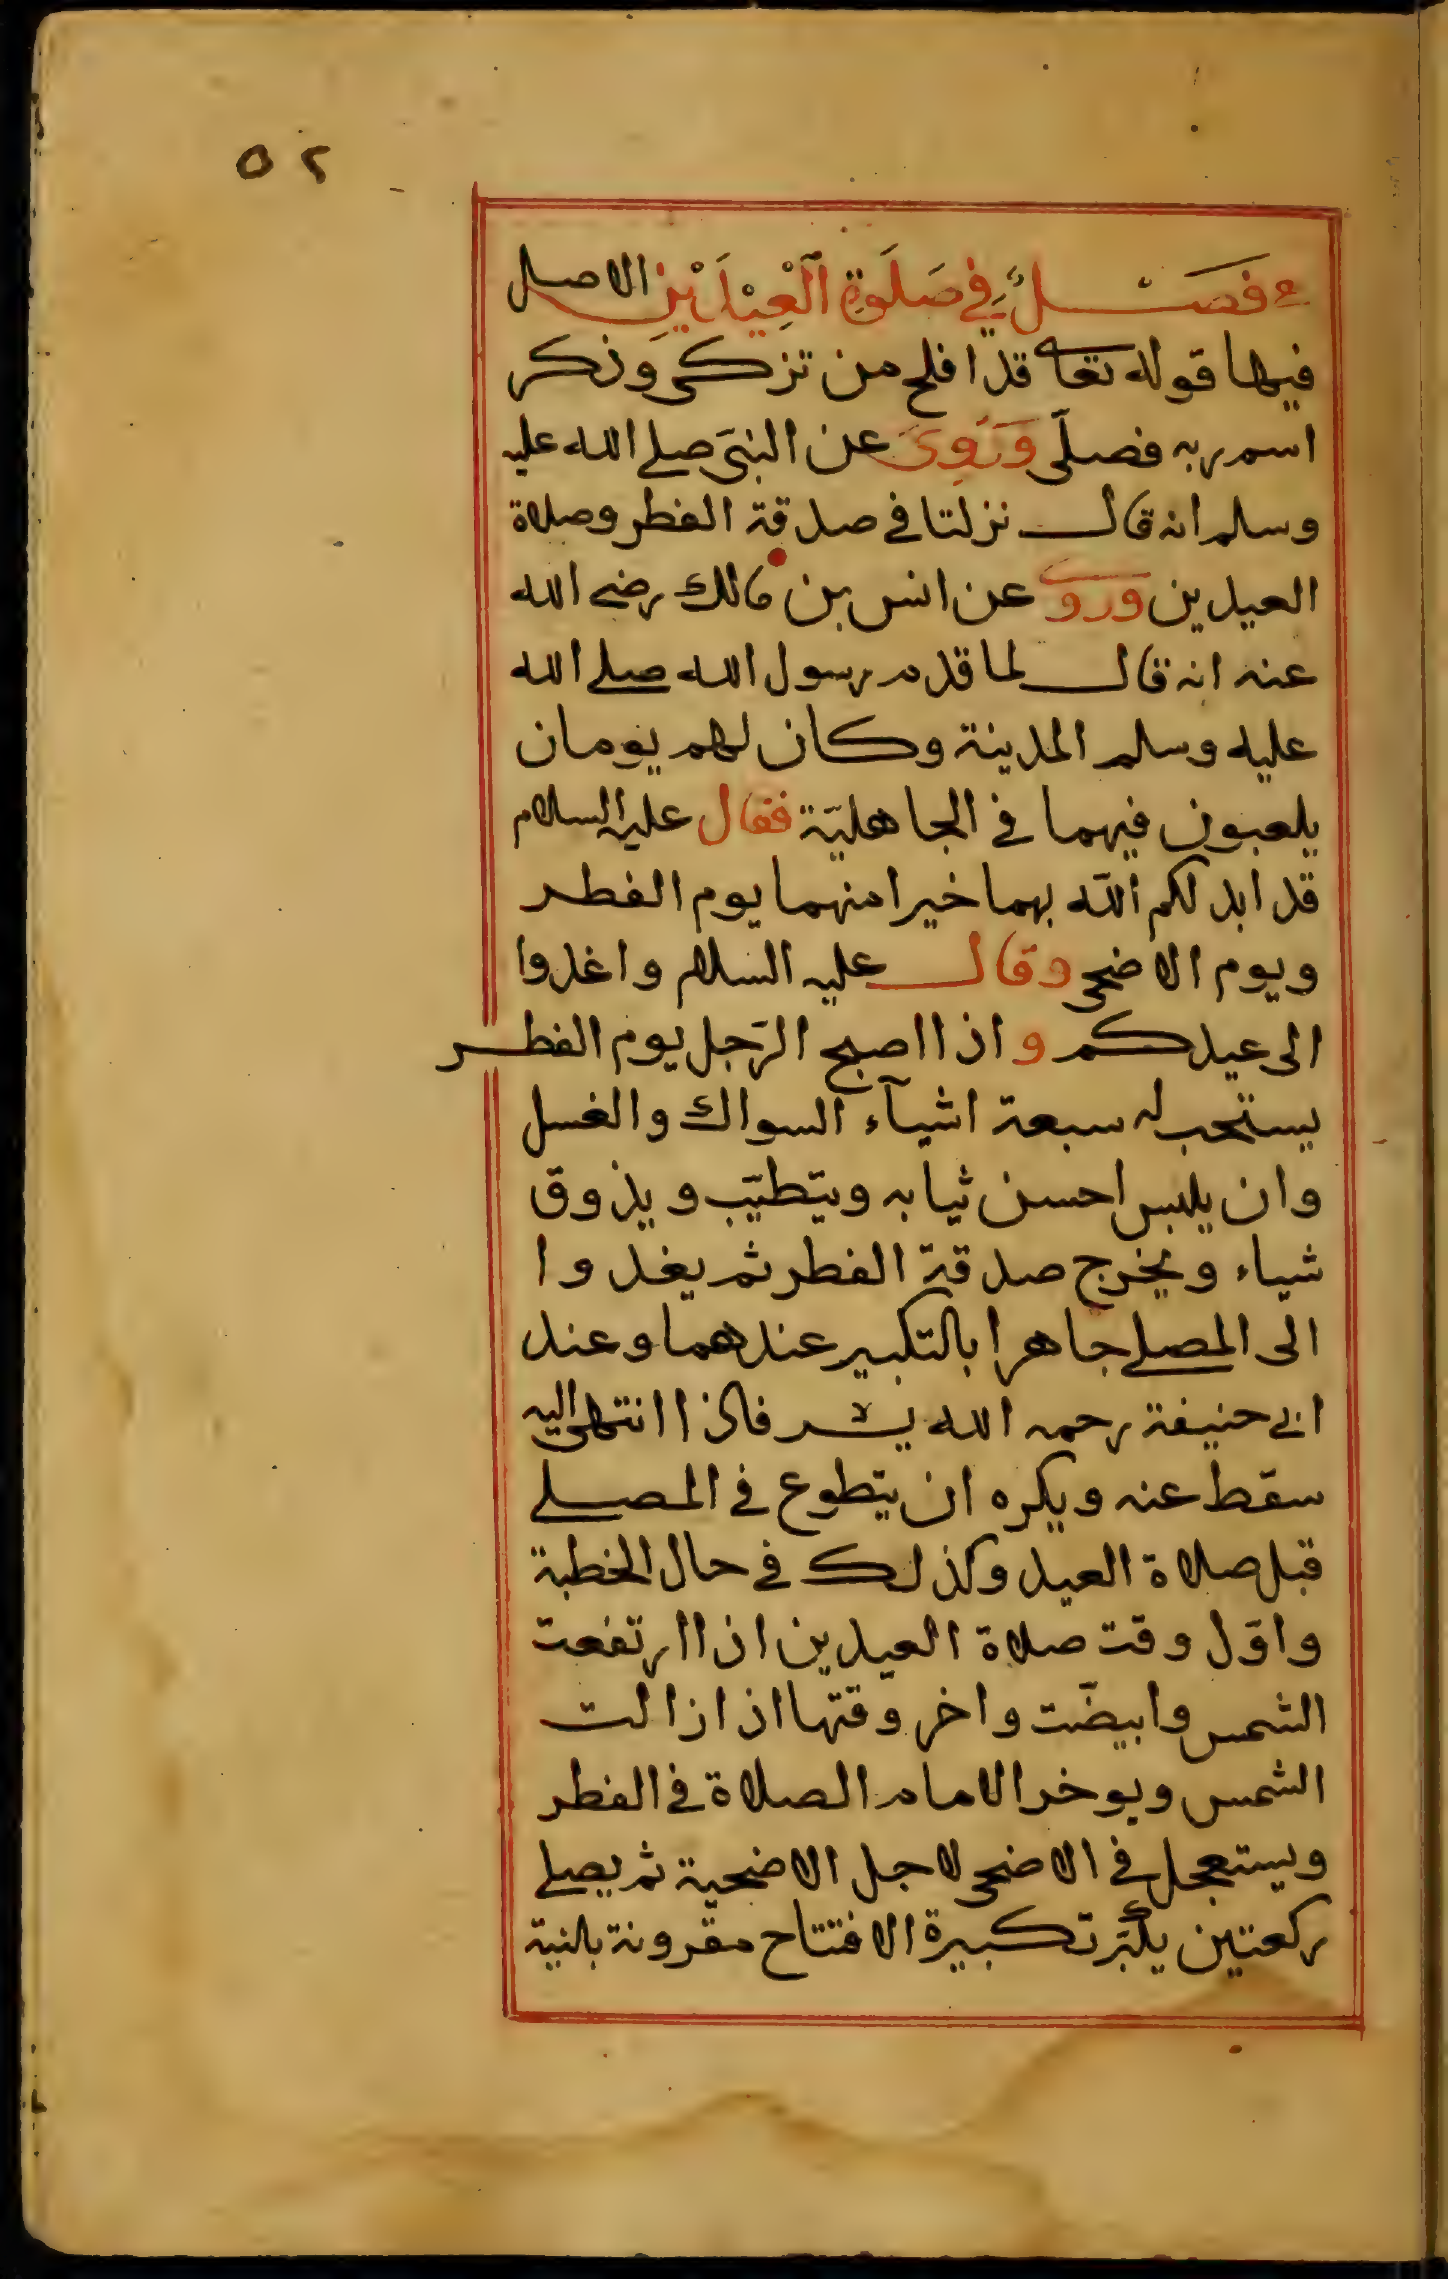 ٥٢
فَصَــلٌ فِي صَلَوةِ الْعِيْدَيْنِ الاصل
فيها قوله تعا قد افلح من تزكى وذكر
اسم ربه فصلّى وَرَوِىَ عن النبىّ صلى الله عليه
وسلم انه قال نزلتا فى صدقة الفطر وصلاة
العيدين وروى عن انس بن مالك رضى الله
عنه انه قال لما قدم رسول الله صلى الله
عليه وسلم المدينة وكان لهم يومان
يلعبون فيهما فى الجاهليّة فقال عليه السلام
قد ابدلكم الله بهما خيرا منهما يوم الفطر
ويوم الاضحى وقال عليه السلام واغدوا
الى عيدكم واذا اصبح الرّجل يوم الفطر
يستحب له سبعة اشيآء السواك والغسل
وان يلبس احسن ثيابه ويتطيّب ويذوق
شياء ويخرج صدقة الفطر ثم يغدوا
الى المصلى جاهرا بالتكبير عندهما وعند
ابى حنيفة رحمه الله يسر فاذا انتهى اليه
سقط عنه ويكره ان يتطوع فى المصلى
قبل صلاة العيد وكذلك فى حال الخطبة
واوّل وقت صلاة العيدين اذا ارتفعت
الشمس وابيضّت واخر وقتها اذا زالت
الشمس ويوخر الامام الصلاة فى الفطر
ويستعجل فى الاضحى لاجل الاضحية ثم يصلى
ركعتين يكبّر تكبيرة الافتتاح مقرونة بالنية